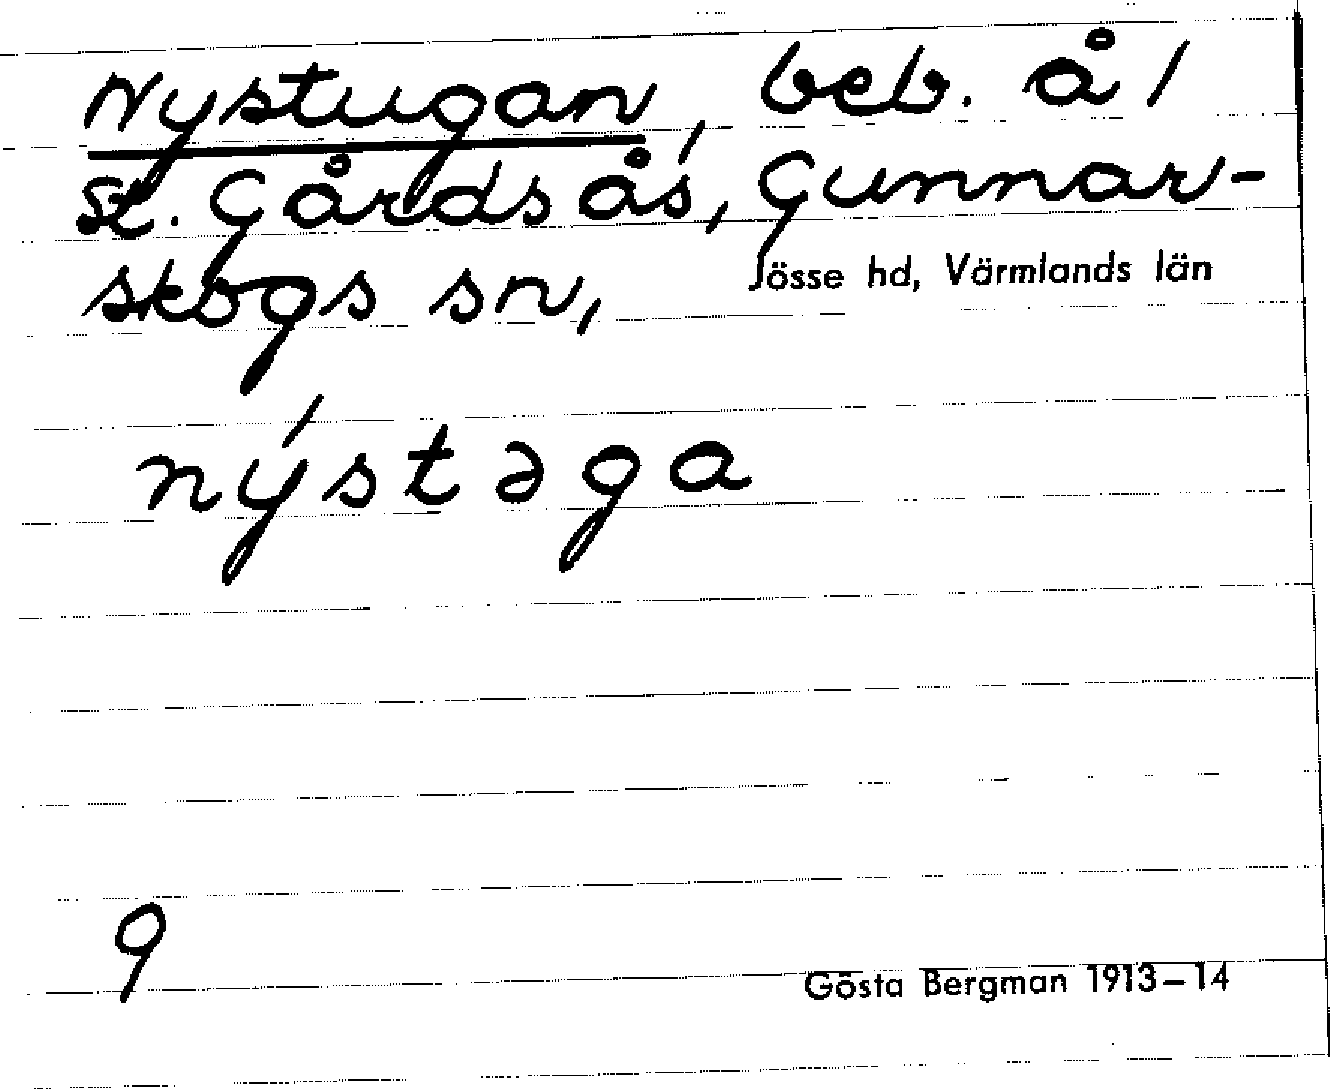 Nystugan, beb. å /
St. Gårdsås, Gunnar-
skogs sn, Jösse hd, Värmlands län
nýstəga
9
Gösta Bergman 1913–14